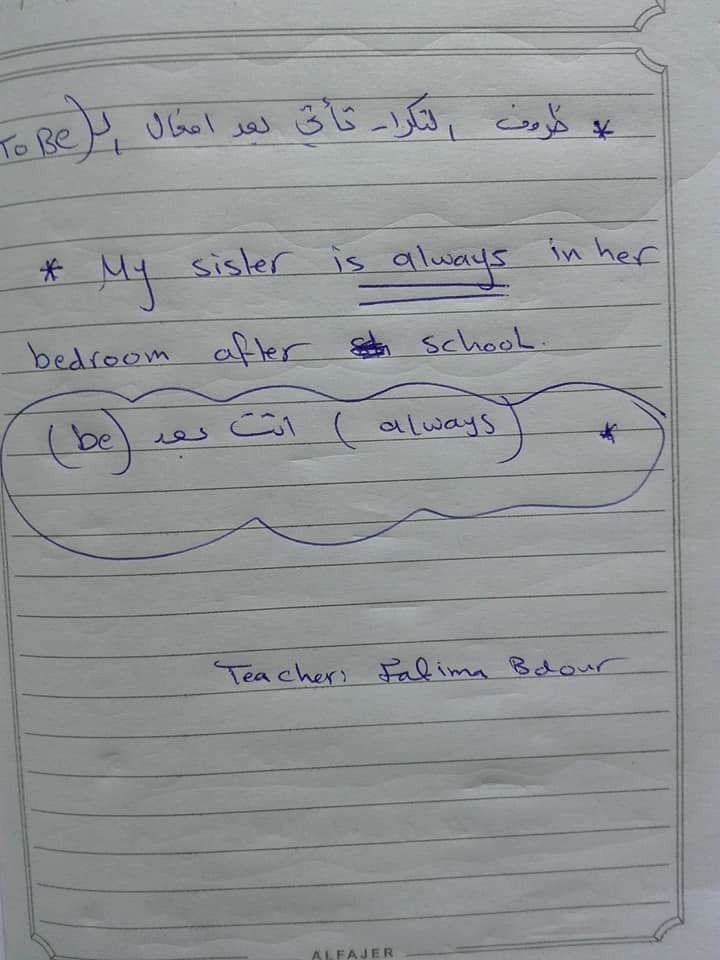 * ظروف التكرار تأتي بعد افعال الـ (To Be
* My sister is always in her
bedroom after school.
* (always) اتت بعد (be)
Teacher: Fatima Bdour
ALFAJER